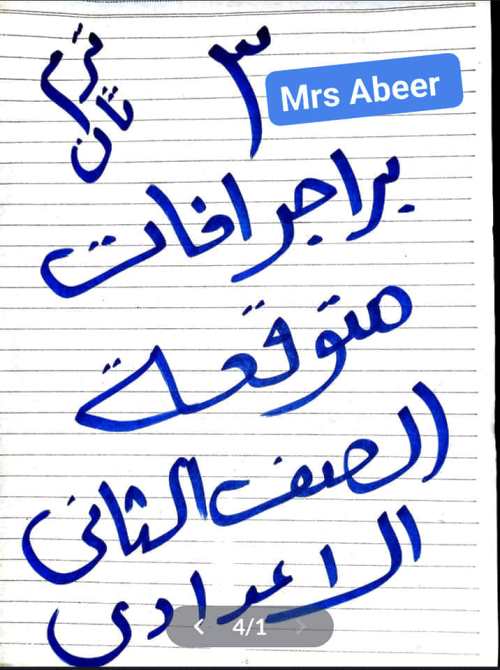 ٣
ترم
ثان
Mrs Abeer
براجرافات
متوقعة
الصف الثانى
الاعدادى
4/1